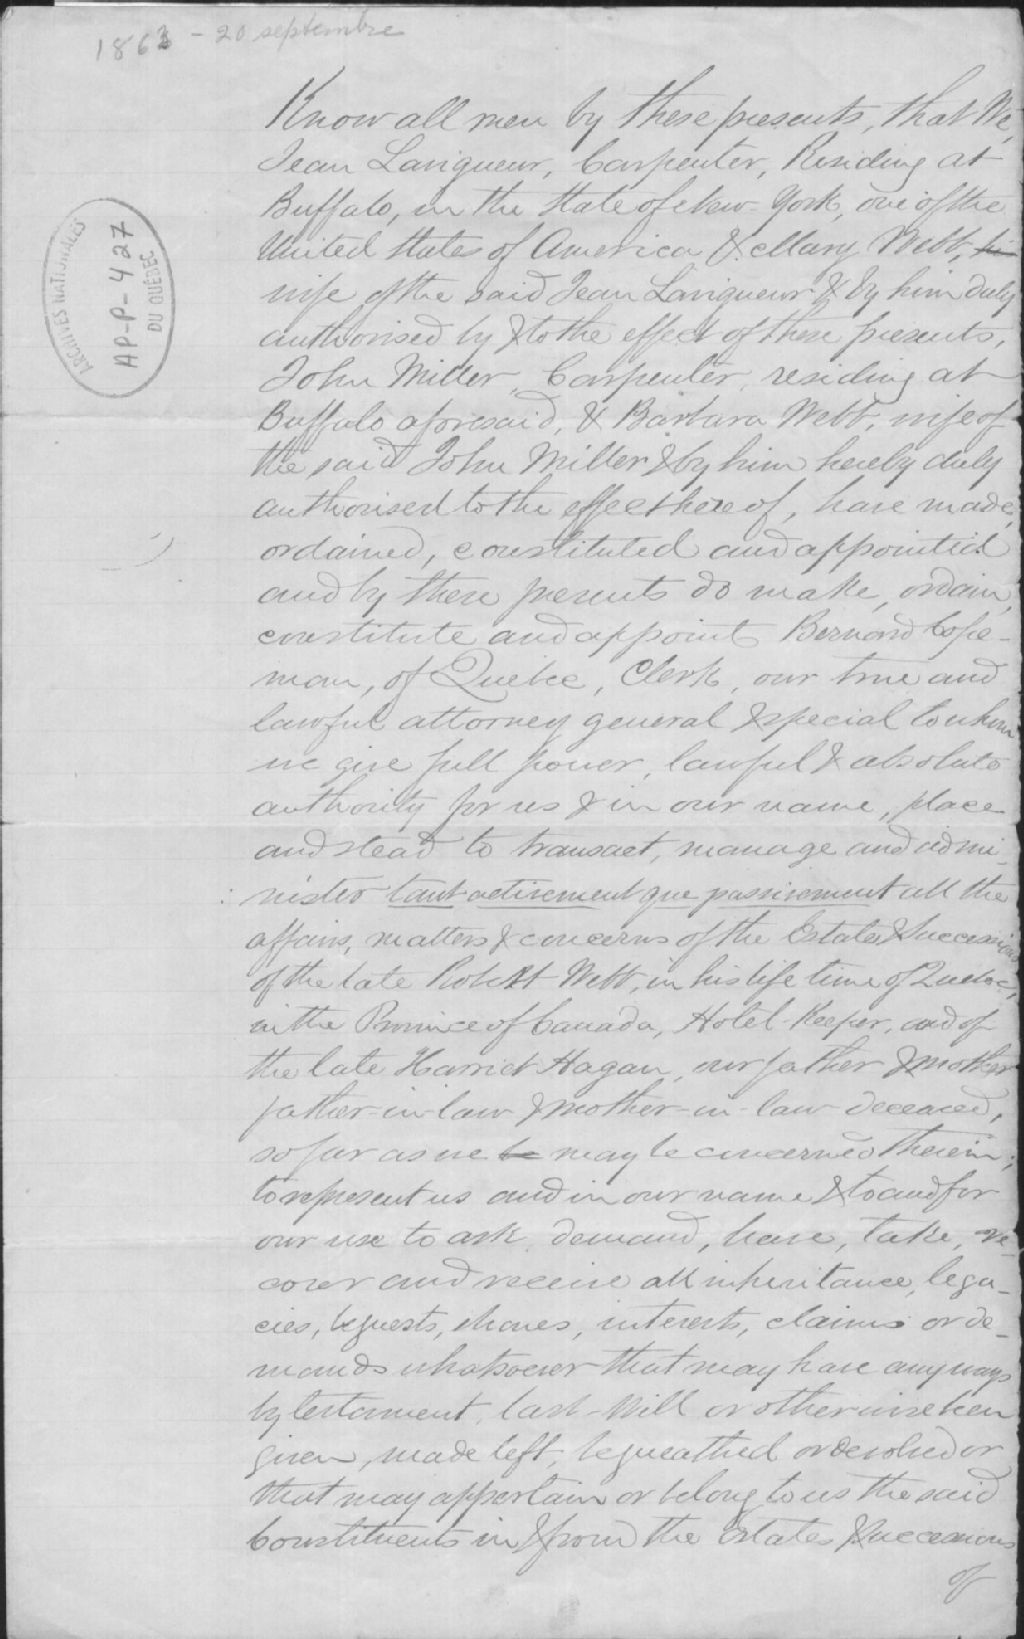 1863 - 20 septembre
ARCHIVES NATIONALES
AP-P-427
DU QUÉBEC
Know all men by these presents, that We,
Jean Lavigueur, Carpenter, Residing at
Buffalo, in the State of New-York, one of the
United States of America & Mary Webb,
wife of the said Jean Lavigueur & by him duly
authorised by & to the effect of these presents,
John Miller, Carpenter, residing at
Buffalo aforesaid, & Barbara Webb, wife of
the said John Miller & by him hereby duly
authorised to the effect hereof, have made,
ordained, constituted and appointed
and by these presents do make, ordain,
constitute and appoint Bernard Cope-
man, of Quebec, Clerk, our true and
lawful attorney general & special to whom
we give full power, lawful & absolute
authority for us & in our name, place
and stead to transact, manage and admi-
nister tant activement que passivement all the
affairs, matters & concerns of the Estates & Successions
of the late Robert Webb, in his life time of Quebec,
in the Province of Canada, Hotel-Keeper, and of
the late Harriet Hagan, our father & mother
father-in-law & mother-in-law deceased,
so far as we be may be concerned therein;
to represent us and in our name & to and for
our use to ask, demand, have, take, re-
cover and receive all inheritance, lega-
cies, bequests, shares, interests, claims or de-
mands whatsoever that may have anyways
by testament, last-Will or otherwise been
given, made left, bequeathed or devolved or
that may appertain or belong to us the said
Constituents in & from the Estates & Successions
of